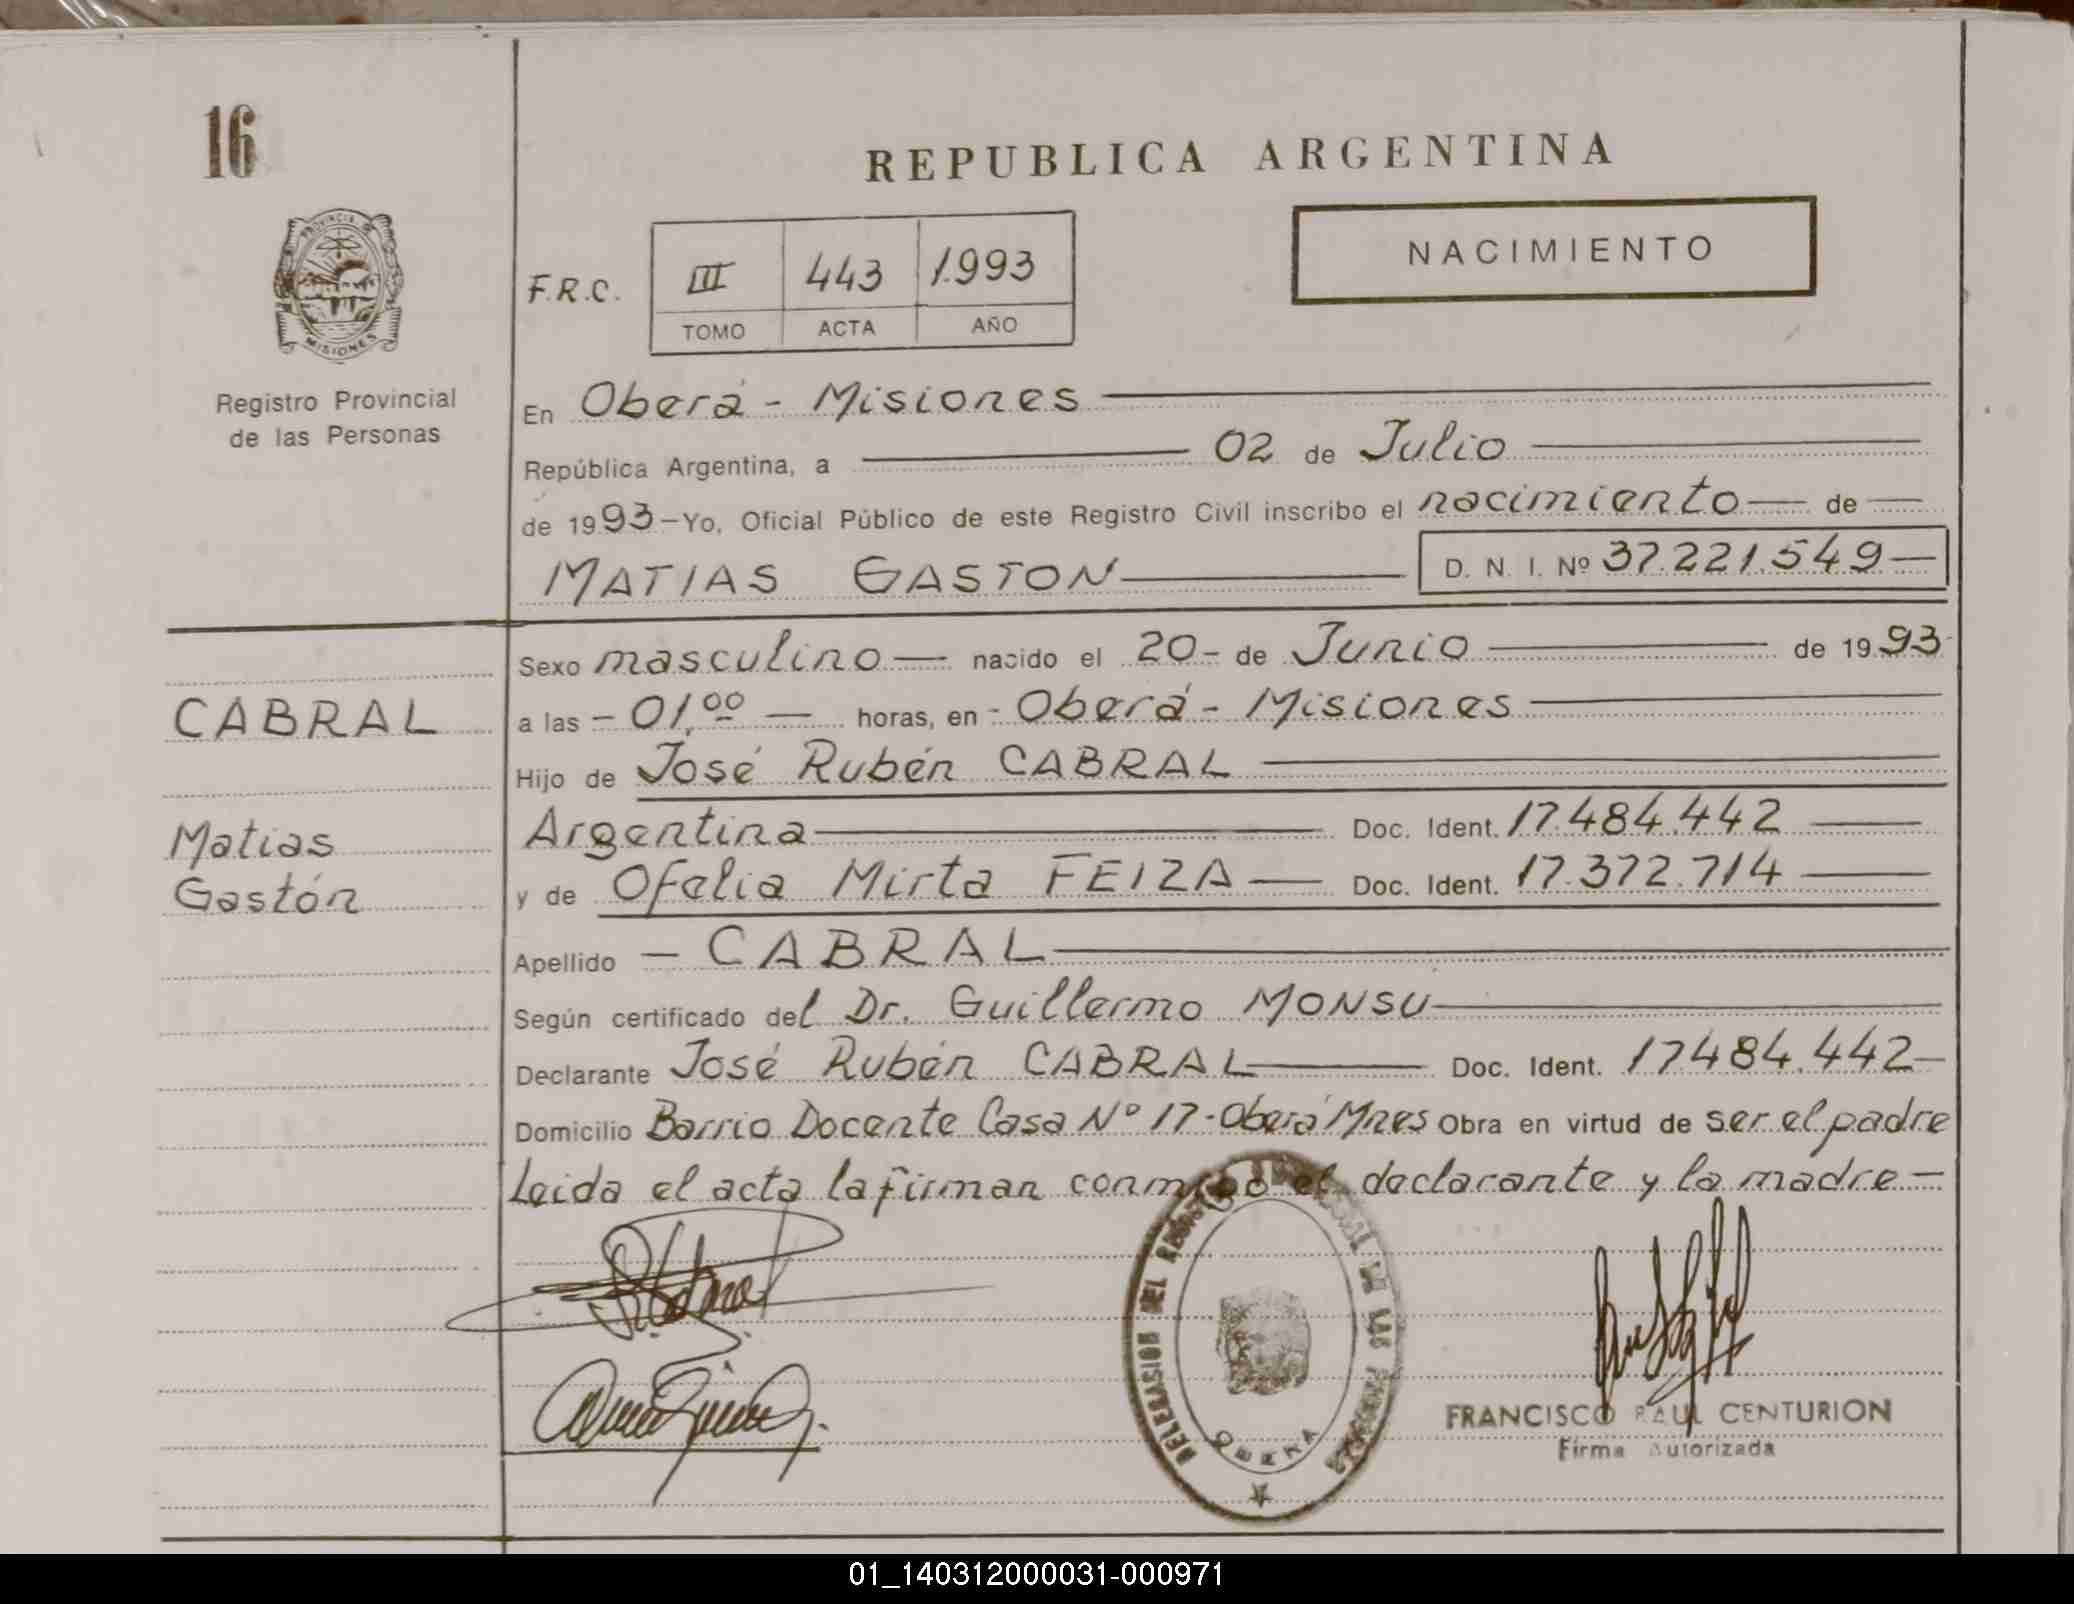 16
REPUBLICA ARGENTINA
NACIMIENTO
PROVINCIA DE
MISIONES
Registro Provincial
de las Personas
F.R.C.
III 443 1.993
TOMO ACTA AÑO
En Oberá - Misiones
República Argentina, a 02 de Julio
de 1993 - Yo, Oficial Público de este Registro Civil inscribo el nacimiento de
MATIAS GASTON D. N. I. Nº 37.221.549
Sexo masculino nacido el 20 - de Junio de 1993
CABRAL
a las - 01,00 horas, en - Oberá - Misiones
Hijo de José Rubén CABRAL
Matias
Gastón
Argentina Doc. Ident. 17.484.442
y de Ofelia Mirta FEIZA Doc. Ident. 17.372.714
Apellido - CABRAL
Según certificado del Dr. Guillermo MONSU
Declarante José Rubén CABRAL Doc. Ident. 17484.442
Domicilio Barrio Docente Casa Nº 17 - Oberá Mnes Obra en virtud de ser el padre
Leida el acta la firman conmigo el declarante y la madre -
DELEGASION DEL REGISTRO
OBERA
FRANCISCO RAUL CENTURION
Firma Autorizada
01_140312000031-000971